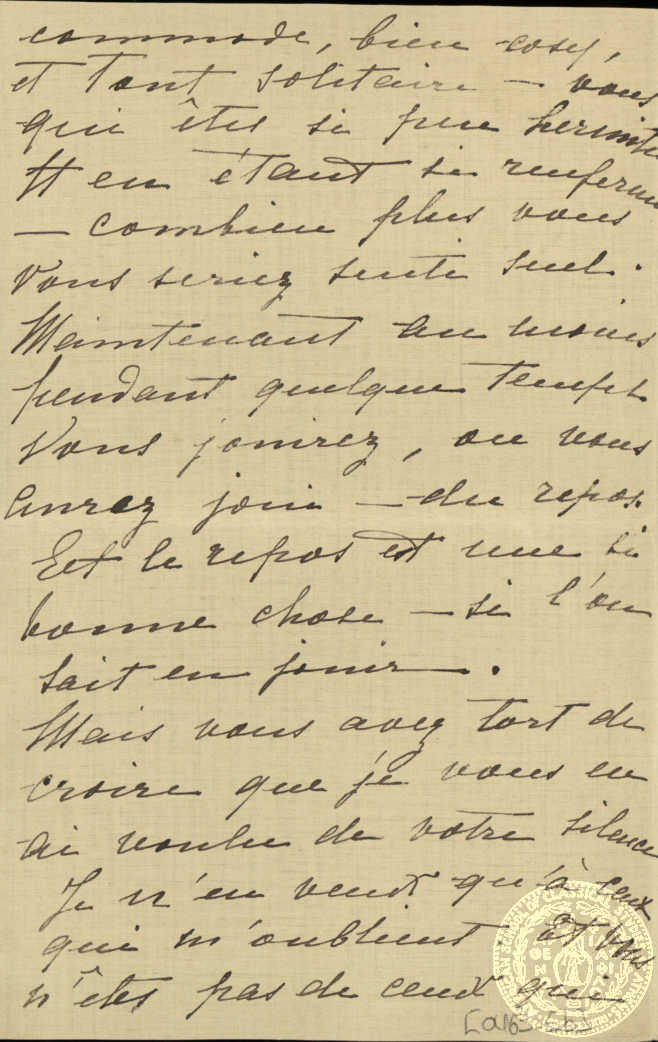 commode, bien cosy,
et tant solitaire — vous
qui êtes si peu hermite
tt en étant si renfermé
— combien plus vous
vous seriez senti seul.
Maintenant au moins
pendant quelque temps
vous jouirez, ou vous
aurez joui — du repos.
Et le repos est une si
bonne chose — si l'on
sait en jouir —.
Mais vous avez tort de
croire que je vous en
ai voulu de votre silence
Je n'en veux qu'à ceux
qui m'oublient. Et vous
n'êtes pas de ceux qui